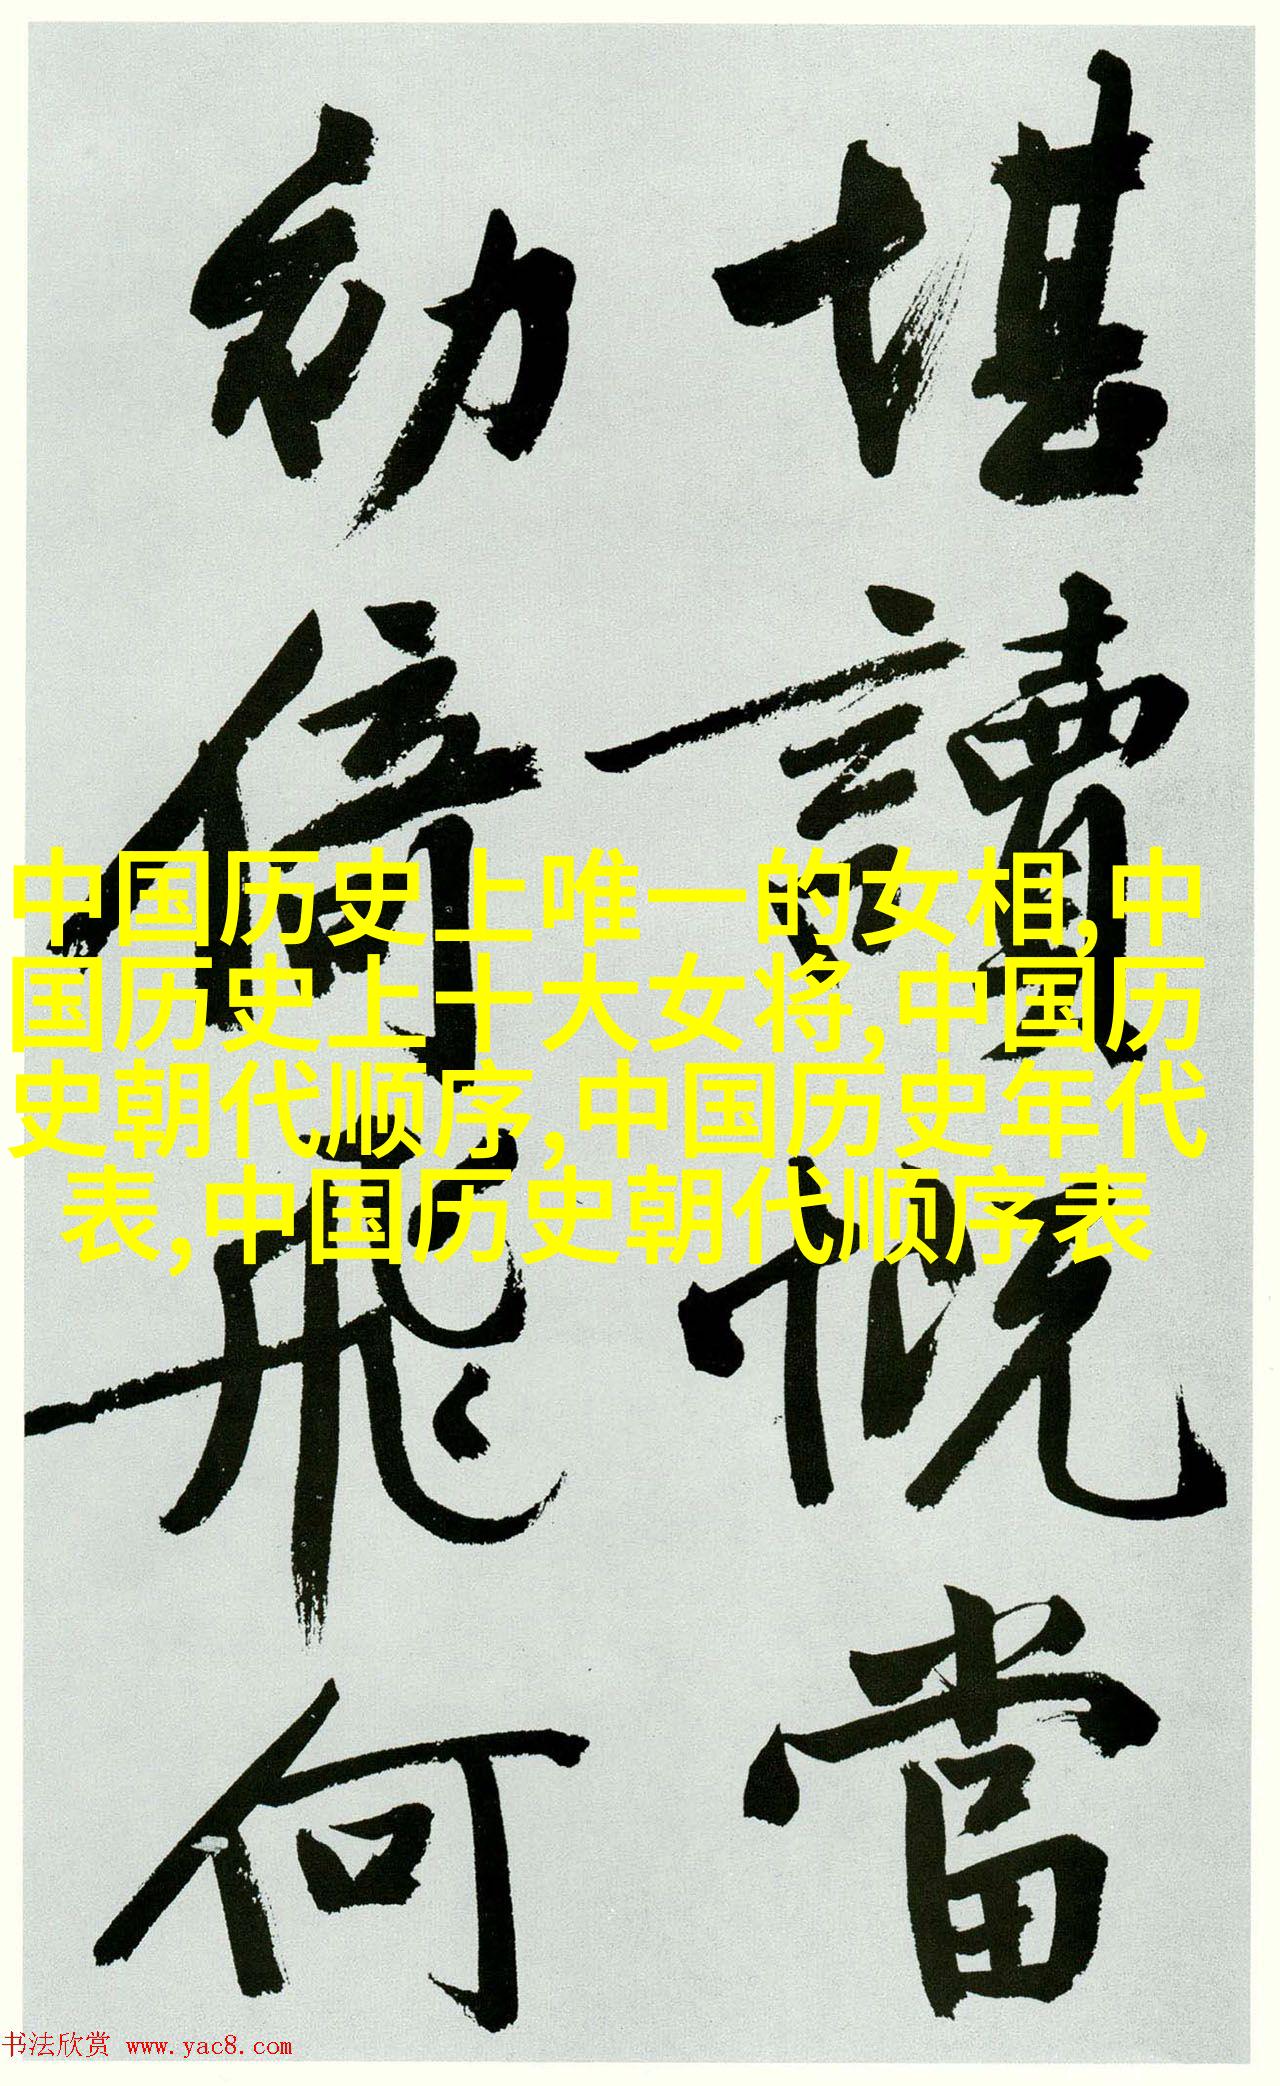 堪讀慨當
劾倚飛何
中国历史上唯一的女相,中
国历史上十大女将,中国历
史朝代顺序,中国历史年代
表,中国历史朝代顺序表
书法欣赏 www.yac8.com